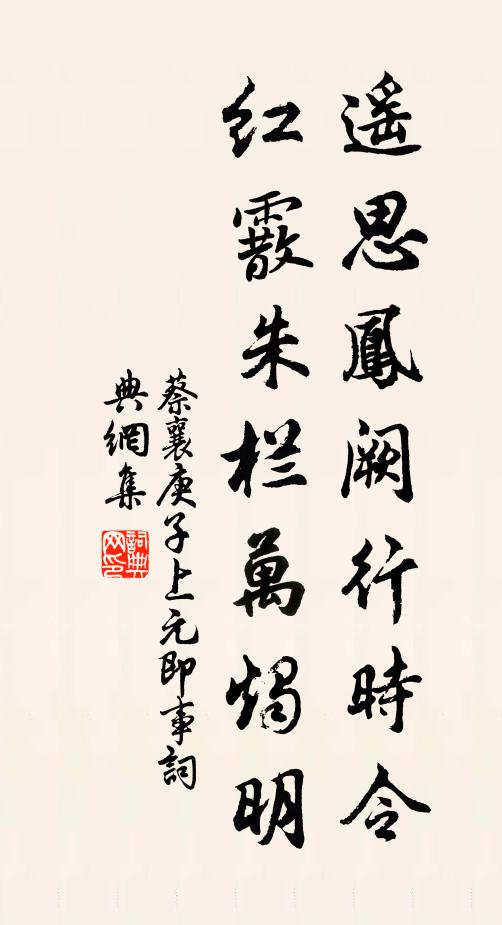 遥思鳳闕行時令
紅霰朱栏萬燭明
蔡襄庚子上元即事詞
典網集
詞典
网印